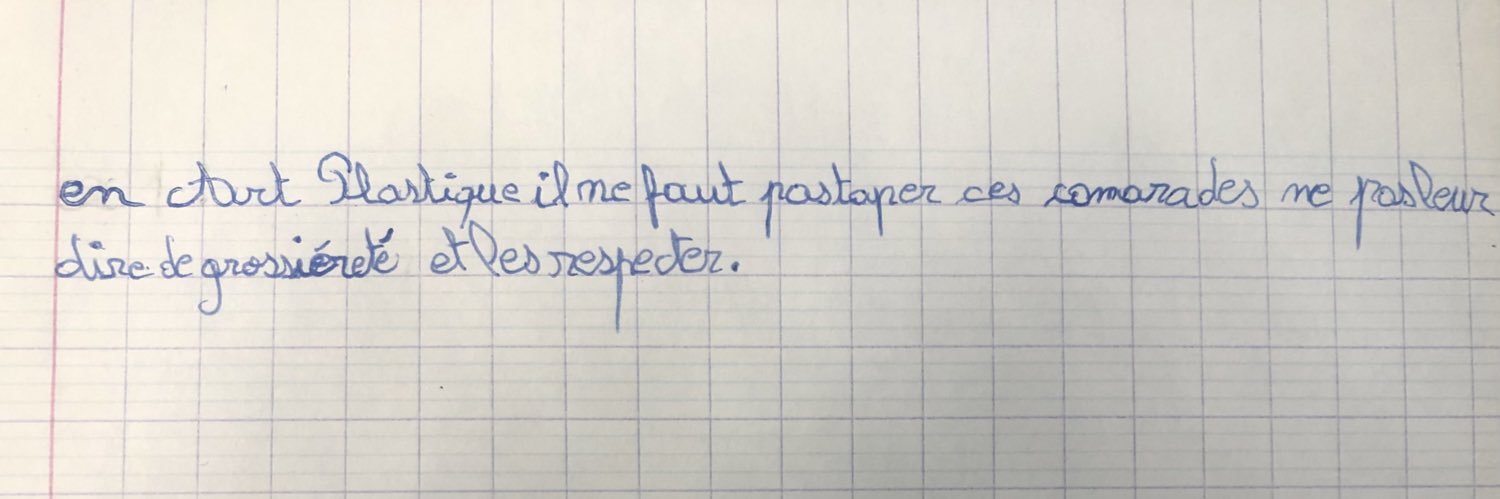 en Art Plastique il ne faut pas taper ces comarades ne pas leur
dire de grossiéreté et les respecter.